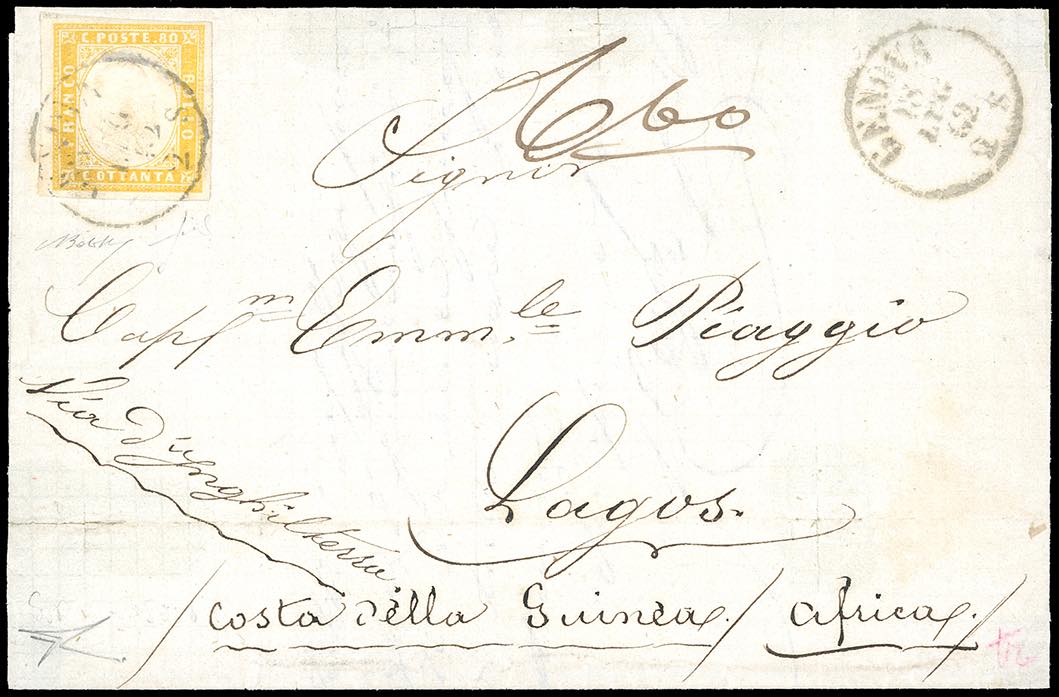 C. POSTE. 80
FRANCO
BOLLO
C. OTTANTA
GENOVA
62
60
Signor
Cap.m Emm.le Piaggio
Via d'Inghilterra
Lagos.
/ Costa della Guinea / Africa /